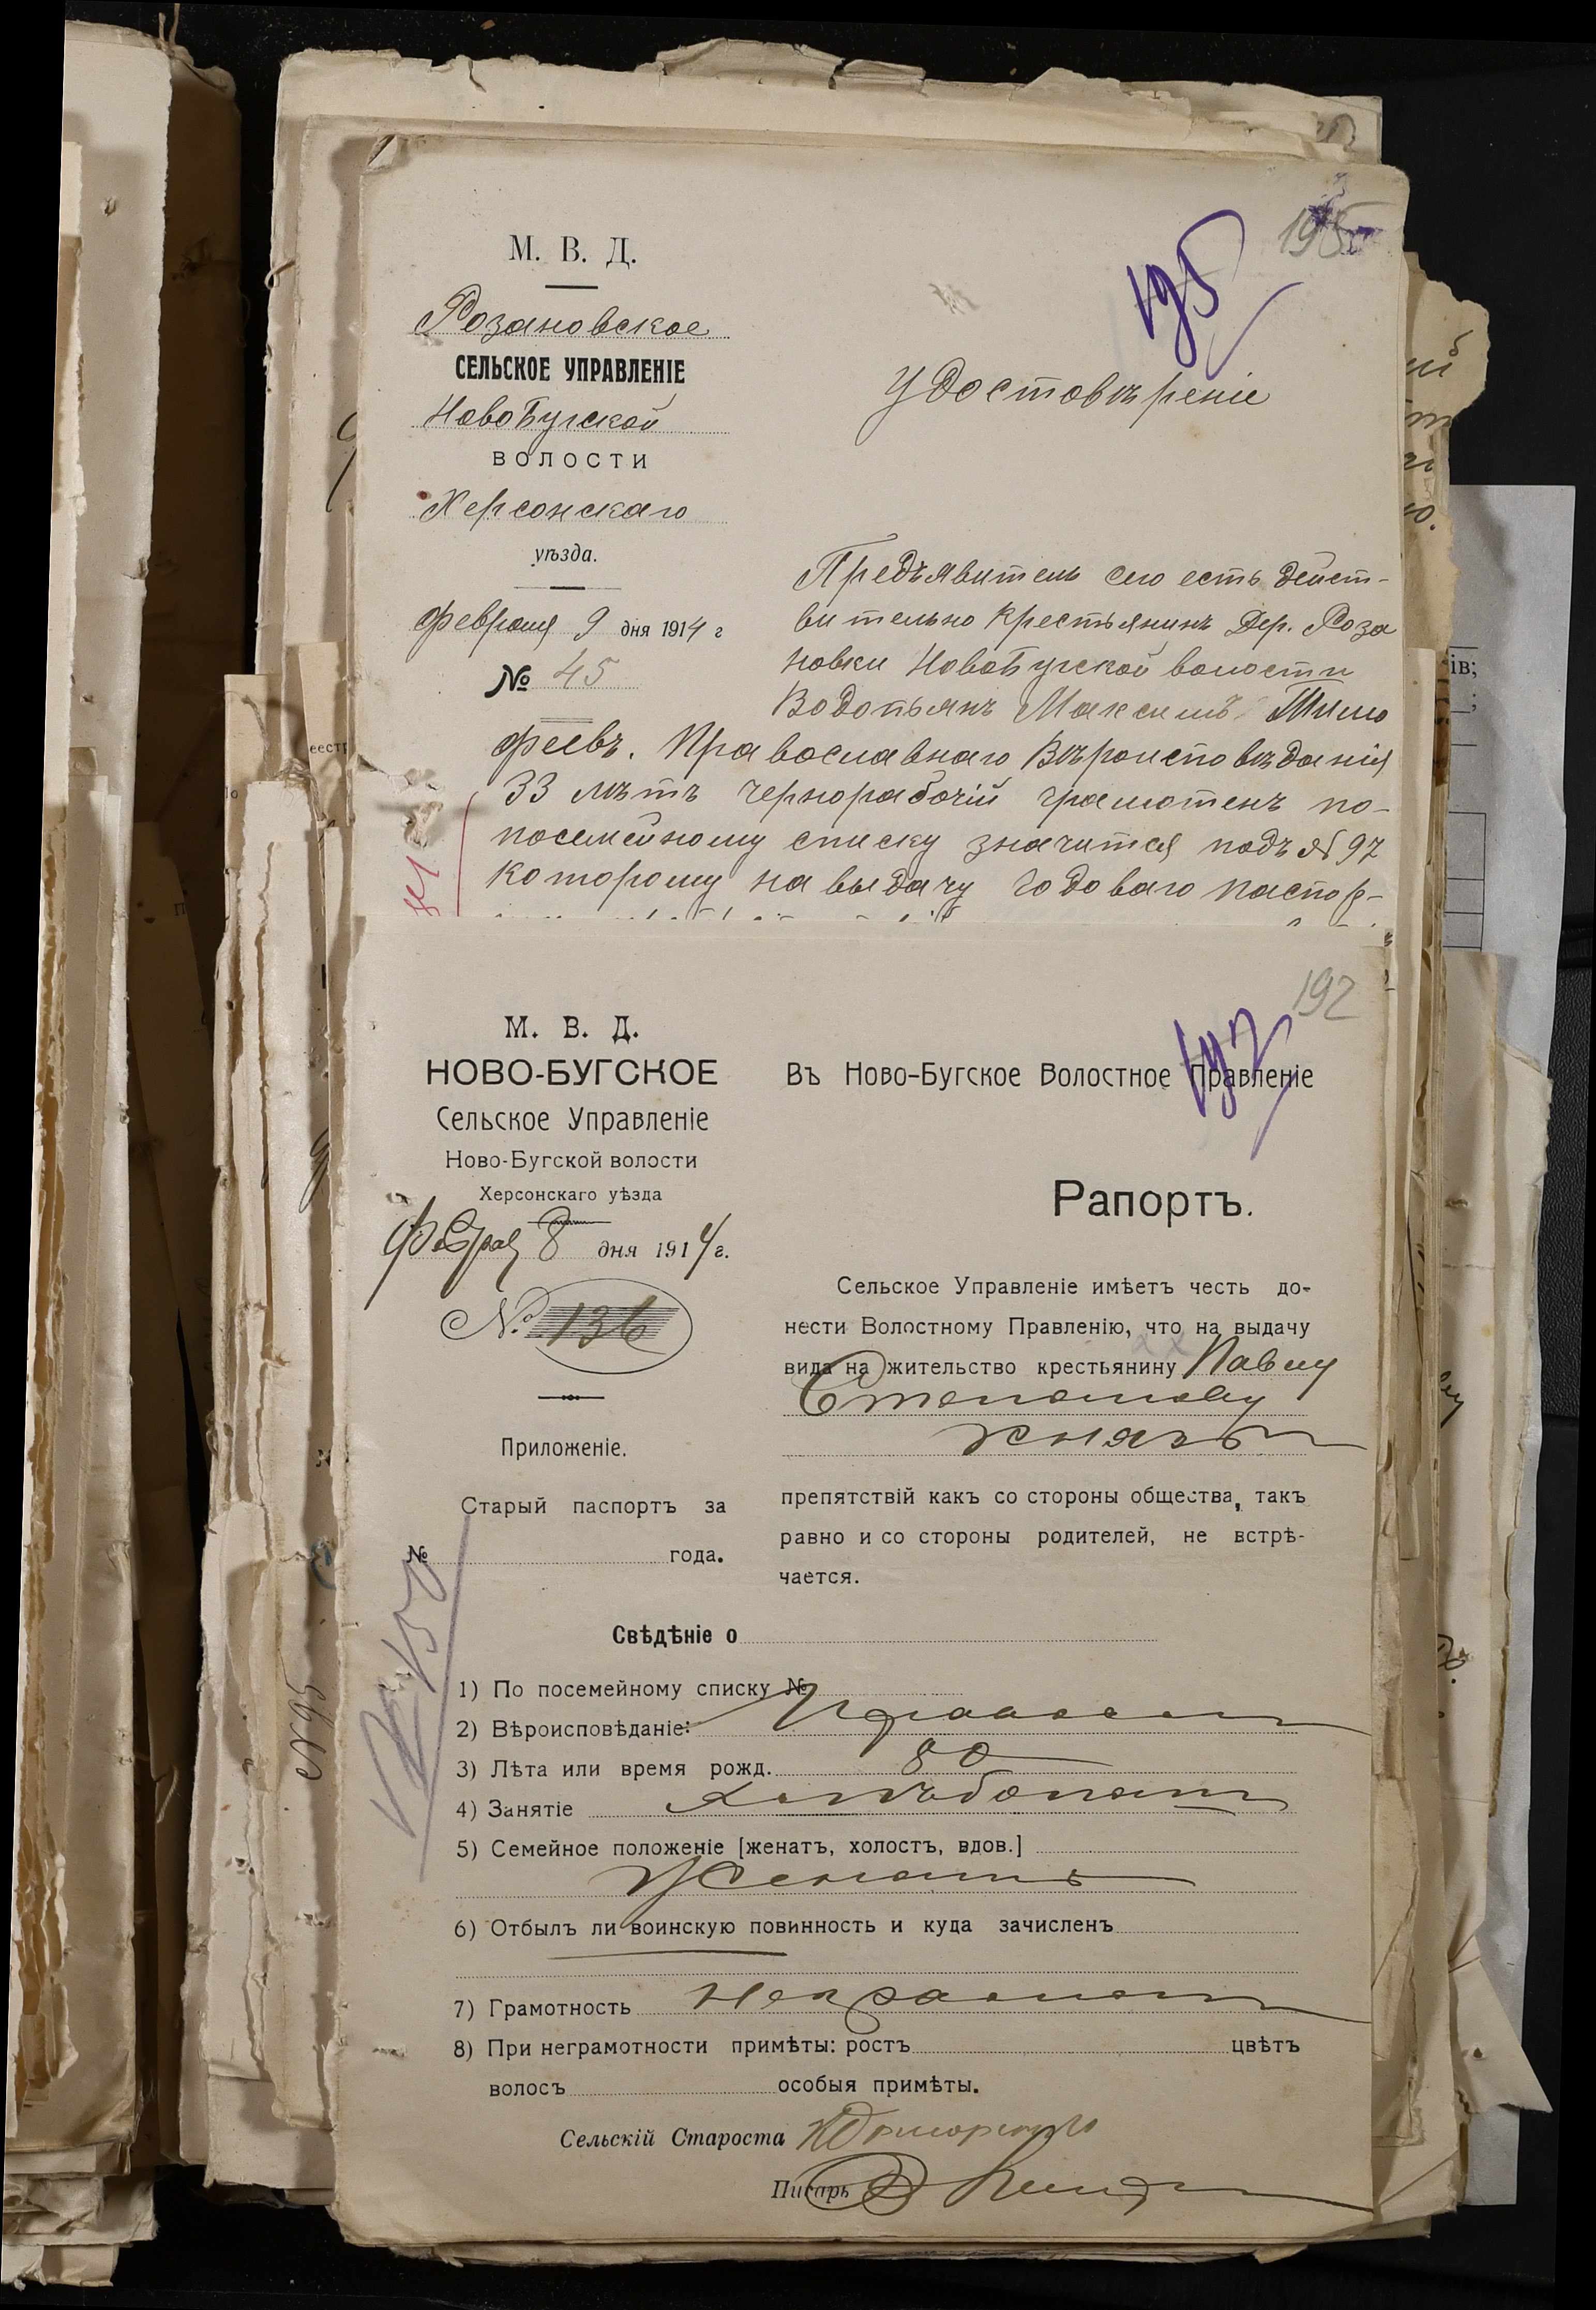 195
195
М. В. Д.
Розановское
СЕЛЬСКОЕ УПРАВЛЕНІЕ
НовоБугской
ВОЛОСТИ
Херсонскаго
уѣзда.
Февраля 9 дня 1914 г
№ 45
Удостовѣреніе
Предъявитель сего есть дѣйст-
вительно крестьянинъ дер. Роза
новки НовоБугской волости
Водопьянъ Максимъ Тимо
феевъ. Православнаго Вѣроисповѣданія
33 лѣтъ чернорабочій грамотенъ по-
посемейному списку значится подъ № 97
которому на выдачу годоваго паспор-
192
192
М. В. Д.
НОВО-БУГСКОЕ
Сельское Управленіе
Ново-Бугской волости
Херсонскаго уѣзда
Феврал 8 дня 1914 г.
№ 136
Приложеніе.
Старый паспортъ за
№ года.
Въ Ново-Бугское Волостное Правленіе
Рапортъ.
Сельское Управленіе имѣетъ честь до-
нести Волостному Правленію, что на выдачу
вида на жительство крестьянину Павлу
Степанову
препятствій какъ со стороны общества, такъ
равно и со стороны родителей, не встрѣ-
чается.
Свѣдѣніе о
1) По посемейному списку №
2) Вѣроисповѣданіе: Православн
3) Лѣта или время рожд. 80
4) Занятіе Хлѣбопаш
5) Семейное положеніе [женатъ, холостъ, вдов.]
Женатъ
6) Отбылъ ли воинскую повинность и куда зачисленъ
7) Грамотность Неграмотн
8) При неграмотности примѣты: ростъ цвѣтъ
волосъ особыя примѣты.
Сельскій Староста
Писарь